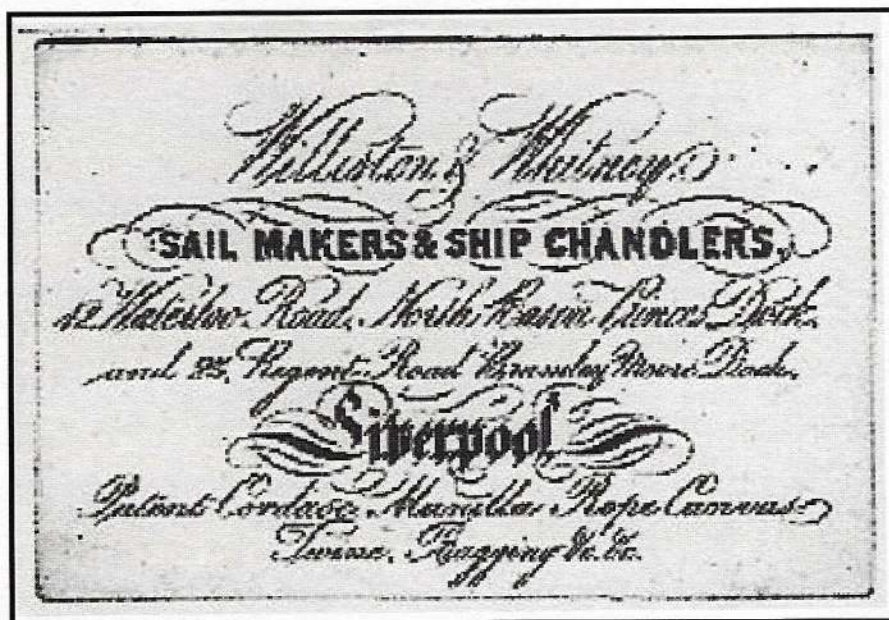 Williston & Whitney
SAIL MAKERS & SHIP CHANDLERS,
Waterloo Road, North Basin Princes Dock
and 25, Regent Road Bramley Moore Dock,
Liverpool
Patent Cordage Manilla Rope Canvas
Twine, &c. &c.